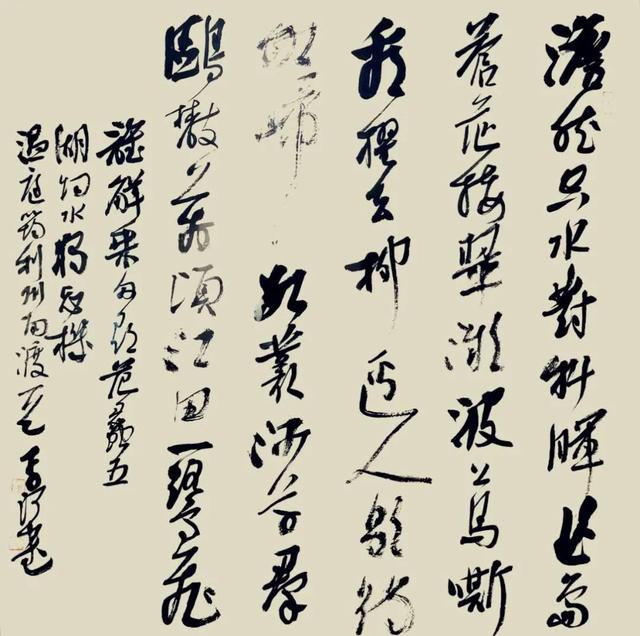 澹然空水對斜暉曲島
蒼茫接翠微波上馬嘶
看櫂去柳邊人歇待
船歸數叢沙草群
鷗散萬頃江田一鷺飛
誰解乘舟尋范蠡五
湖烟水獨忘機
温庭筠利州南渡